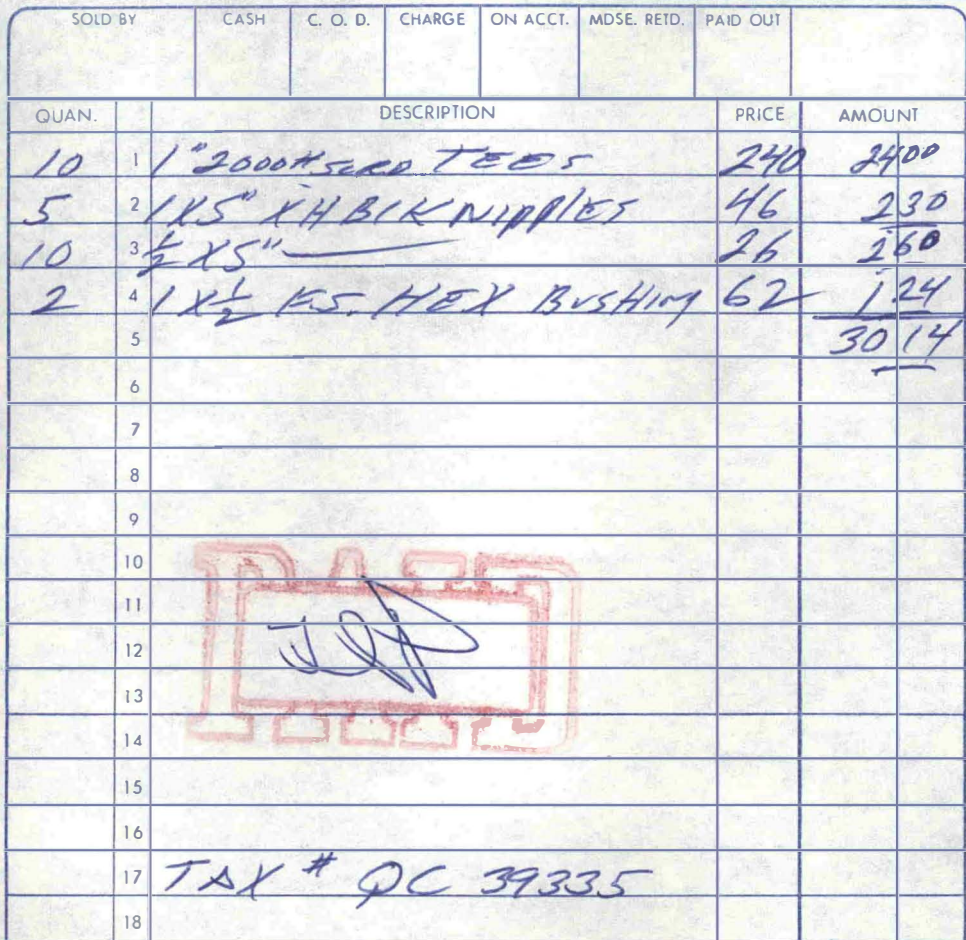 SOLD BY CASH C. O. D. CHARGE ON ACCT. MDSE. RETD. PAID OUT
QUAN. DESCRIPTION PRICE AMOUNT
10 1 1" 2000# SCRD TEES 240 2400
5 2 1X5" XH BLK NIPPLES 46 230
10 3 1/2 X5" 26 260
2 4 1X1/2 F.S. HEX BUSHING 62 1 24
5 30 14
6
7
8
9
10
11
12
13
14
15
16
17 TAX # QC 39335
18